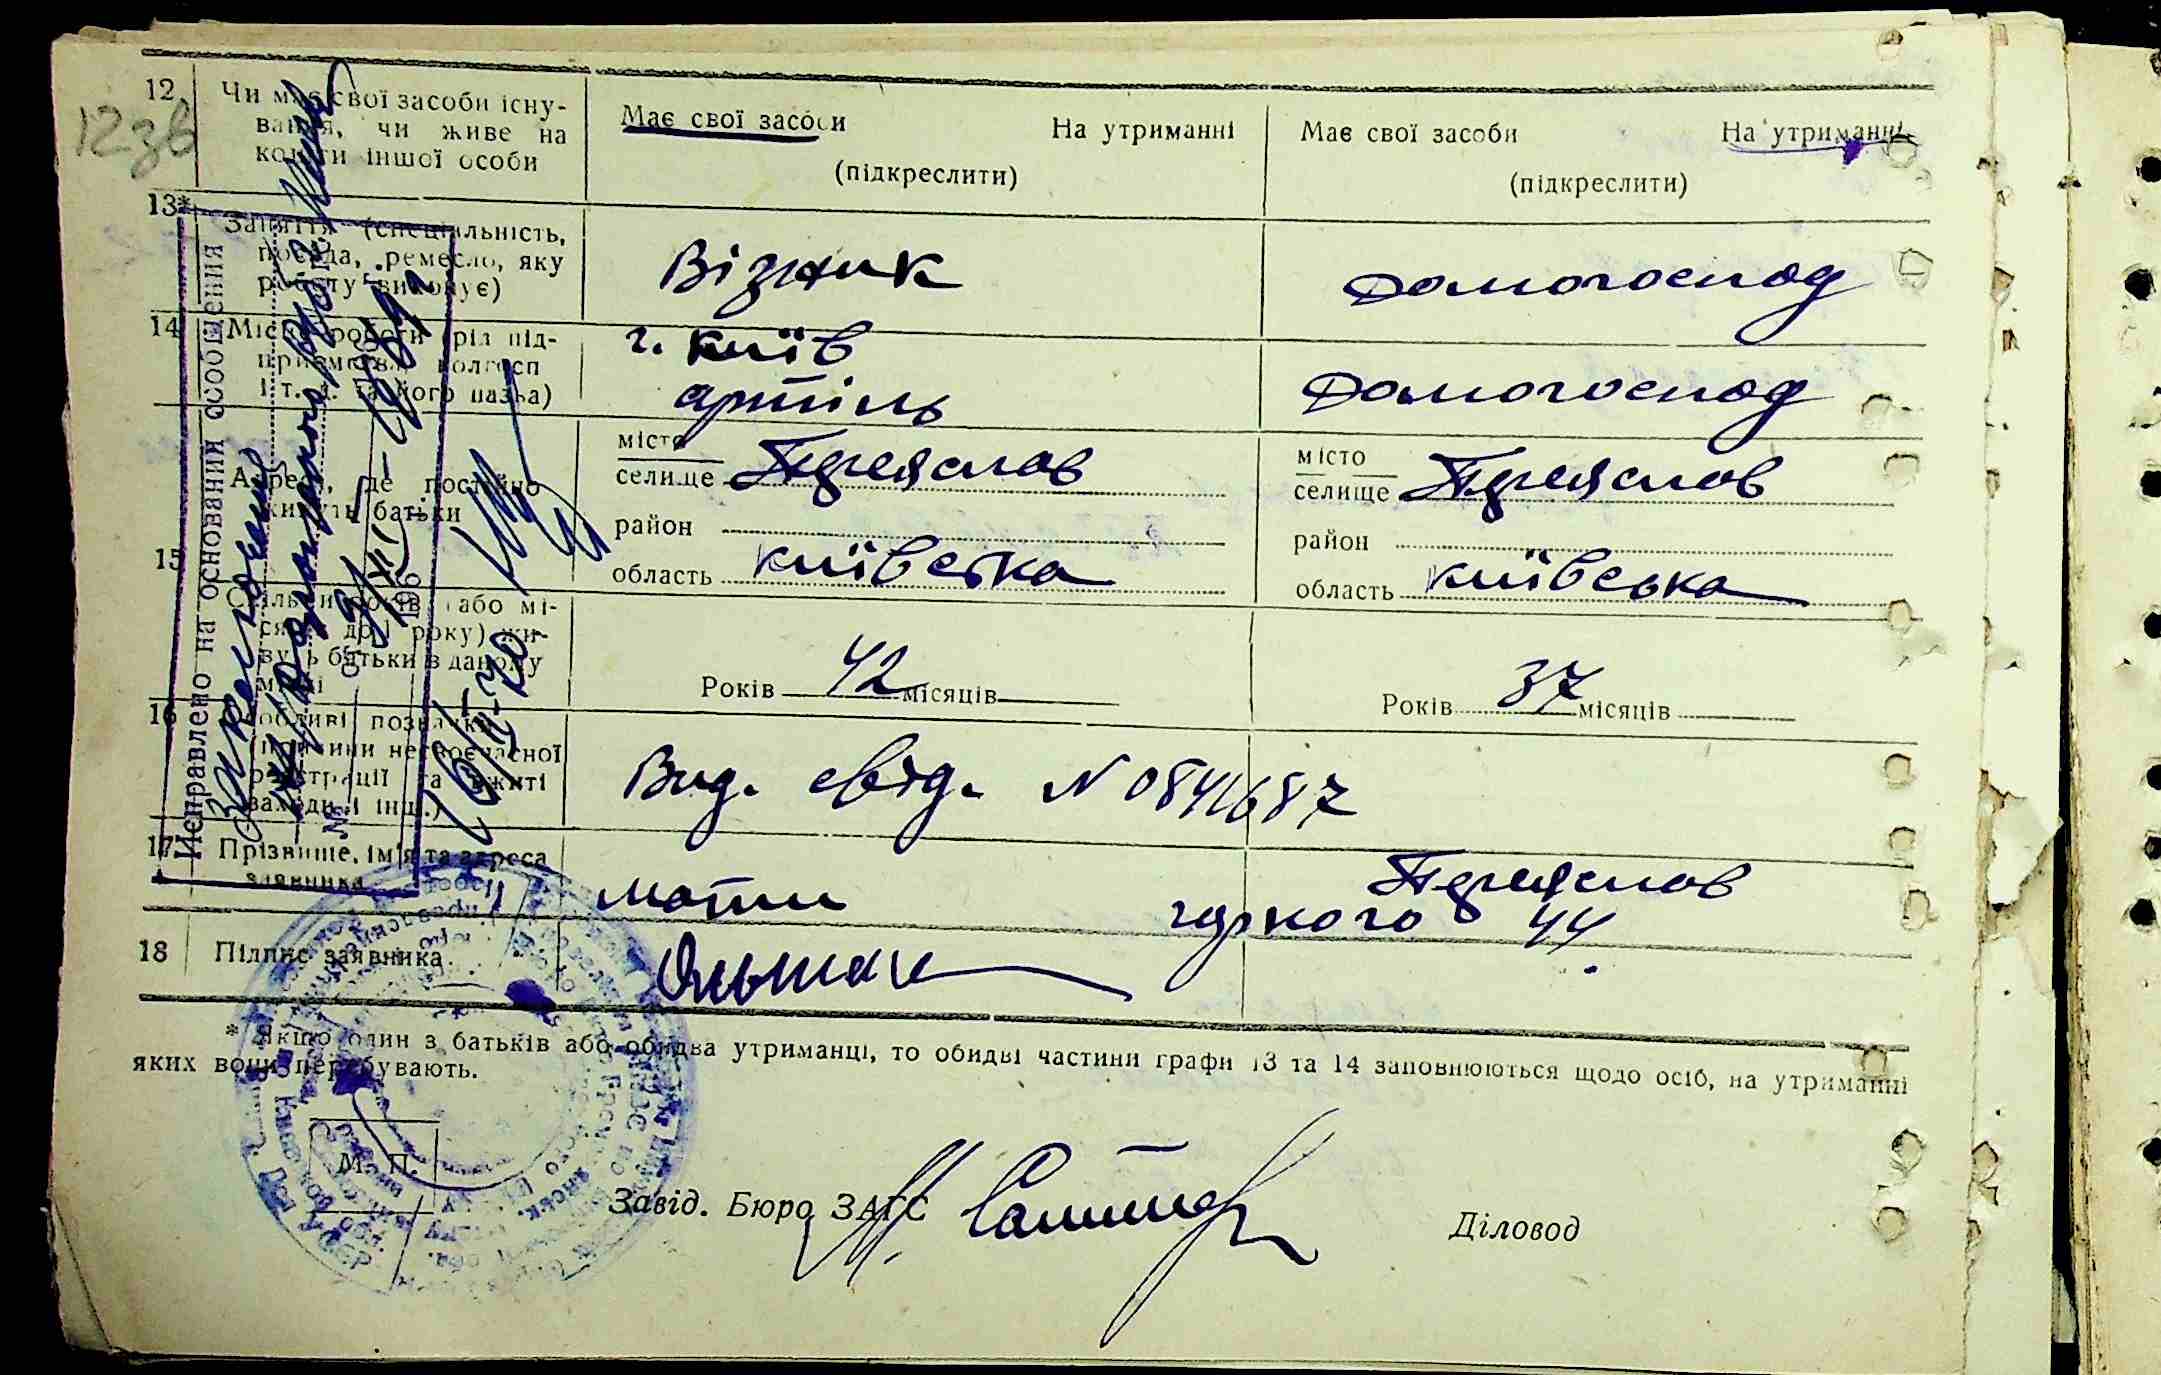 12зв
12 Чи має свої засоби існу-
вання, чи живе на
кошти іншої особи
Має свої засоби На утриманні
(підкреслити)
Має свої засоби На утриманні
(підкреслити)
13* Заняття (спеціальність,
посада, ремесло, яку
роботу виконує)
Візник
домогоспод
14 Місце роботи (рід під-
приємства, колгосп
і т. д. та його назва)
г. Київ
артіль
домогоспод
15 Адреса, де постійно
живуть батьки
місто
селище Переяслов
район
область Київська
місто
селище Переяслов
район
область Київська
Скільки років (або мі-
сяців до 1 року) жи-
вуть батьки в даному
місці
Років 42 місяців
Років 37 місяців
16 Особливі позначки
(причини несвоєчасної
реєстрації та вжиті
заходи і інш.)
Вид. свід. N 0841687
17 Прізвище, ім'я та адреса
заявника
мати Переяслов
горкого 44.
18 Підпис заявника
* Якщо один з батьків або обидва утриманці, то обидві частини графи 13 та 14 заповнюються щодо осіб, на утриманні
яких вони перебувають.
М. П.
Завід. Бюро ЗАГС
Діловод
Исправлено на основании сообщения
№